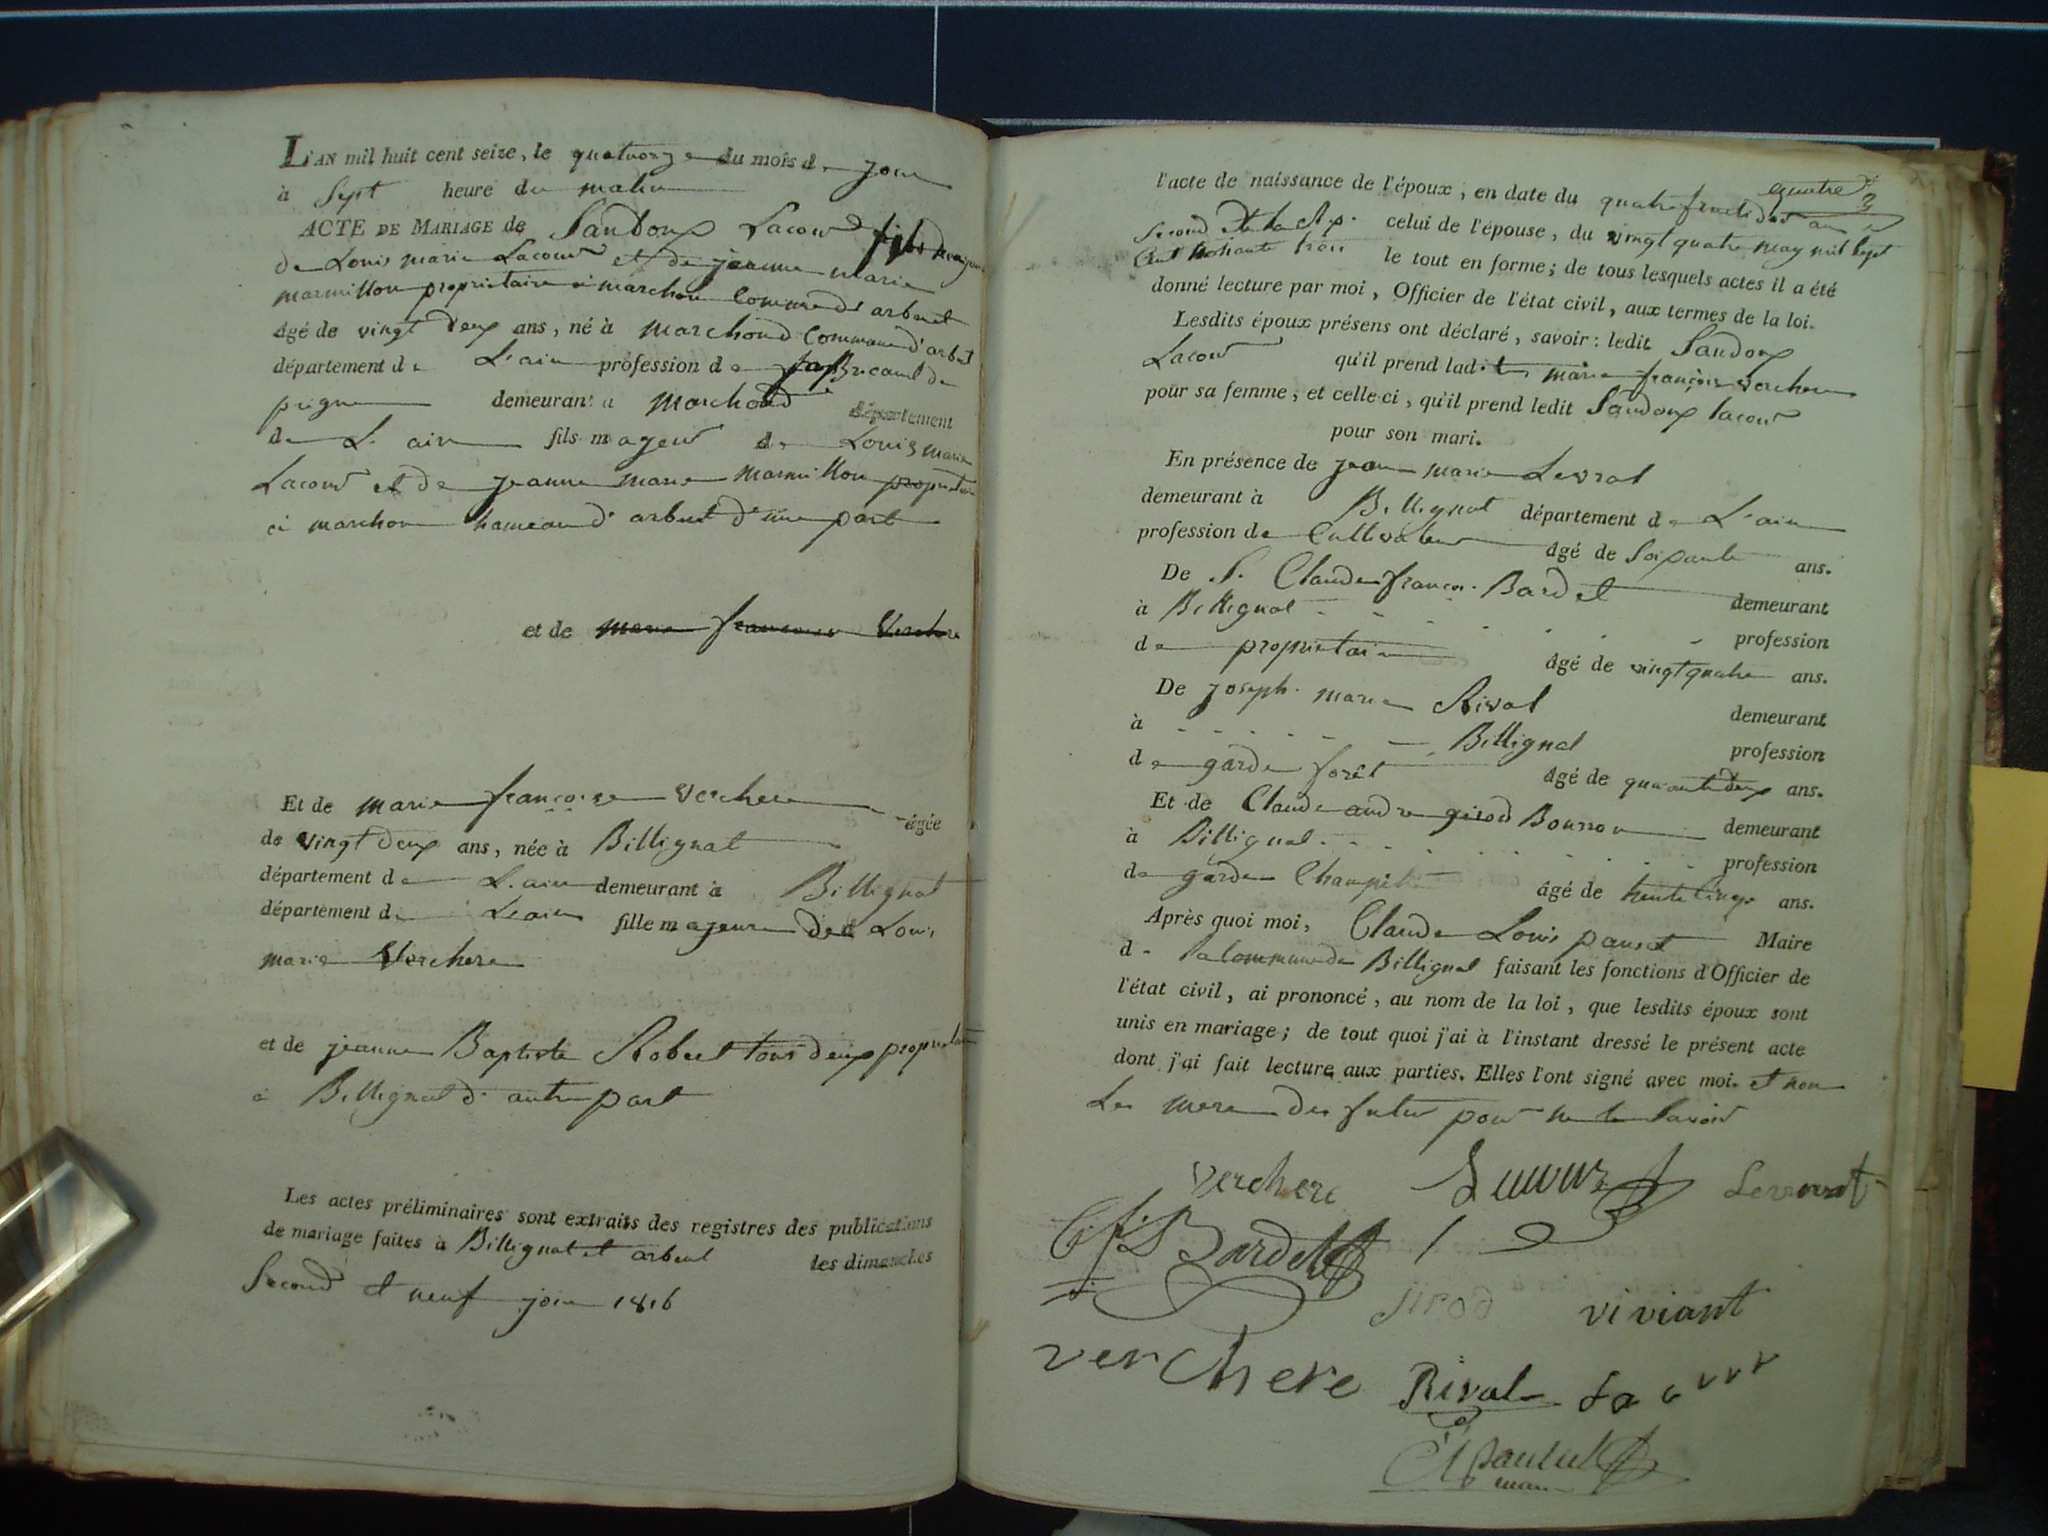 L'AN mil huit cent seize, le quatorze du mois de join
à Sept heure du matin
ACTE DE MARIAGE de Sandoux Lacour fils majeur
de Louis marie Lacour et de jeanne marie
marmillon propriétaire à marchon Commune d'arbent
âgé de vingt deux ans, né à marchond Commune d'arbent
département de L'ain profession de fabricant de
peigne demeurant à marchond département
de L'ain fils majeur de Louis marie
Lacour et de jeanne marie marmillon propriétaire
à marchon hameau d'arbent d'une part
et de marie françoise Verchere
Et de marie françoise verchere âgée
de vingt deux ans, née à Billignat
département de L'ain demeurant à Billignat
département de L'ain fille majeure de Loui
marie Verchere
et de jeanne Baptiste Robert tous deux propriétaire
à Billignat d'autre part
Les actes préliminaires sont extraits des registres des publications
de mariage faites à Billignat et arbent les dimanches
Second et neuf join 1816
l'acte de naissance de l'époux, en date du quatre fructidor an quatre
Second de la Rep. celui de l'épouse, du vingt quatre may mil sept
le tout en forme; de tous lesquels actes il a été
donné lecture par moi, Officier de l'état civil, aux termes de la loi.
Lesdits époux présens ont déclaré, savoir: ledit Sandoux
Lacour qu'il prend ladite marie françoise verchere
pour sa femme; et celle-ci, qu'il prend ledit Sandoux lacour
pour son mari.
En présence de jean marie Levrat
demeurant à Billignat département de L'ain
profession de Cultivateur âgé de Soixante ans.
De S. Claude françois Bardet demeurant
à Billignat profession
de propriétaire âgé de vingt quatre ans.
De joseph marie Rival demeurant
à Billignat profession
de garde forêt âgé de quarante deux ans.
Et de Claude andre girod Bonron demeurant
à Billignat profession
de garde Champêtre âgé de trente cinq ans.
Après quoi moi, Claude Louis pansut Maire
de la Commune de Billignat faisant les fonctions d'Officier de
l'état civil, ai prononcé, au nom de la loi, que lesdits époux sont
unis en mariage; de tout quoi j'ai à l'instant dressé le présent acte
dont j'ai fait lecture aux parties. Elles l'ont signé avec moi. et non
Les mere des futur pour ne le Savoir
verchere Lacour Levrat
C. f. Bardet
Jirod viviant
verchere Rival La
maire